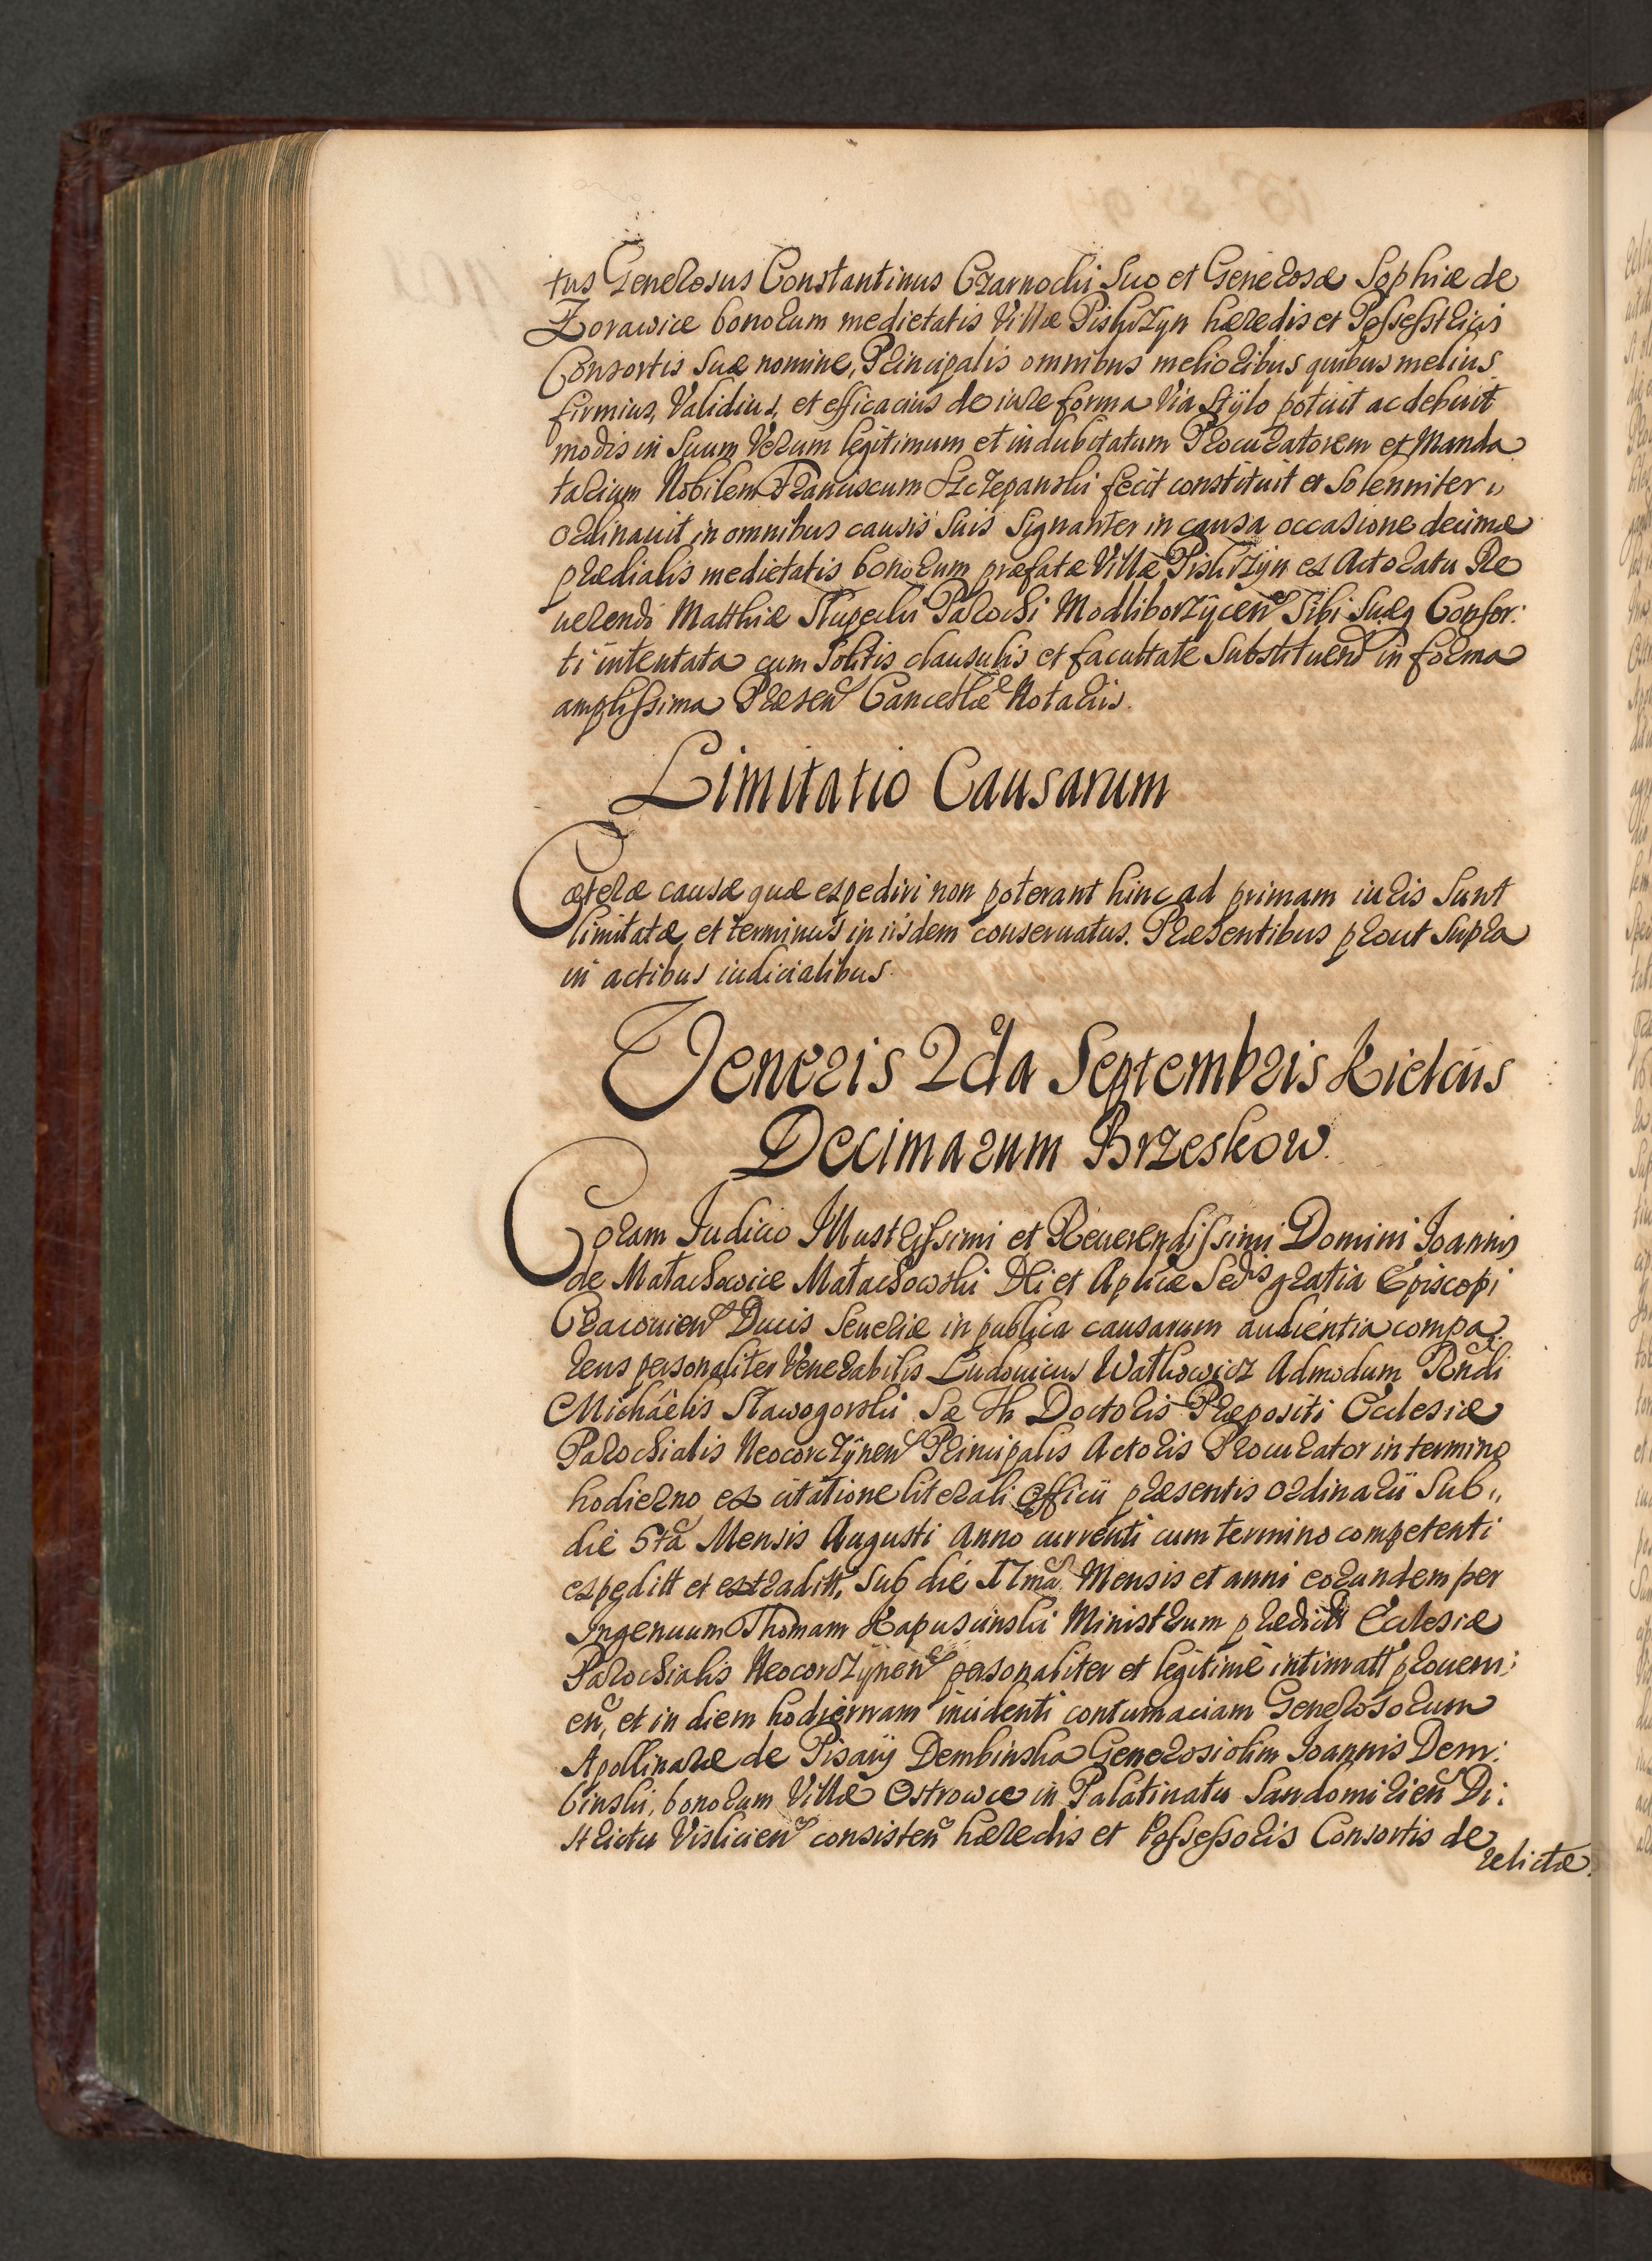 tus Generosus Constantinus Czarnocki Suo et Generosæ Sophiæ de
Zorawice bonorum medietatis Villæ Piskrzyn hæredis et Possestricis
Consortis Suæ nomine, Principalis omnibus melioribus quibus melius
firmius, Validius, et efficacius de iure forma Via Stÿlo potuit ac debuit
modis in Suum Verum legitimum et indubitatum Procuratorem et Manda
tarium Nobilem Franciscum Szczepanski fecit constituit et Solenniter„
ordinauit in omnibus causis Suis Signanter in causa occasione decimæ
prædialis medietatis bonorum præfatæ Villæ Piskrzÿn ex Actoratu Re
uerendi Matthiæ Słupecki Parochi Modliborzÿcen Sibi Suæq Consor:
ti intentata cum Solitis clausulis et facultate Substituend in forma
amplissima Præsen Cancellæ Notariis.
Limitatio Causarum
Cæteræ causæ quæ expediri non poterant hinc ad primam iuris Sunt
limitatæ, et terminus in iisdem conseruatus. Præsentibus prout Supra
in actibus iudicialibus.
Veneris 2da Septembris Kielciis
Decimarum Brzeskow
Coram Iudicio Illustrissimi et Reuerendissimi Domini Ioannis
de Małachowice Małachowski Dei et Aplicæ Sedis gratia Episcopi
Cracouien Ducis Seueriæ in publica causarum audientia compa:
rens personaliter Venerabilis Ludouicus Wathowicz Admodum Rndi
Michaëlis Sławogorski Sæ Th Doctoris Præpositi Ecclesiæ
Parochialis Neocorczÿnen Principalis Actoris Procurator in termino
hodierno ex citatione literali Officii præsentis ordinarii Sub„
die 5ta Mensis Augusti Anno currenti cum termino competenti
expeditt et extraditt, Sub die 17ma Mensis et anni eorundem per
Ingenuum Thomam Kapuscinski Ministrum prædictt Ecclesiæ
Parochialis Neocorczÿnen personaliter et legitime intimatt proueni:
en, et in diem hodiernam incidenti contumaciam Generosorum
Apollinaræ de Pisaiÿ Dembinska Generosi olim Ioannis Dem:
binski, bonorum Villæ Ostrowce in Palatinatu Sandomirien Di:
strictu Vislicien consisten hæredis et Possessoris Consortis de
relictæ